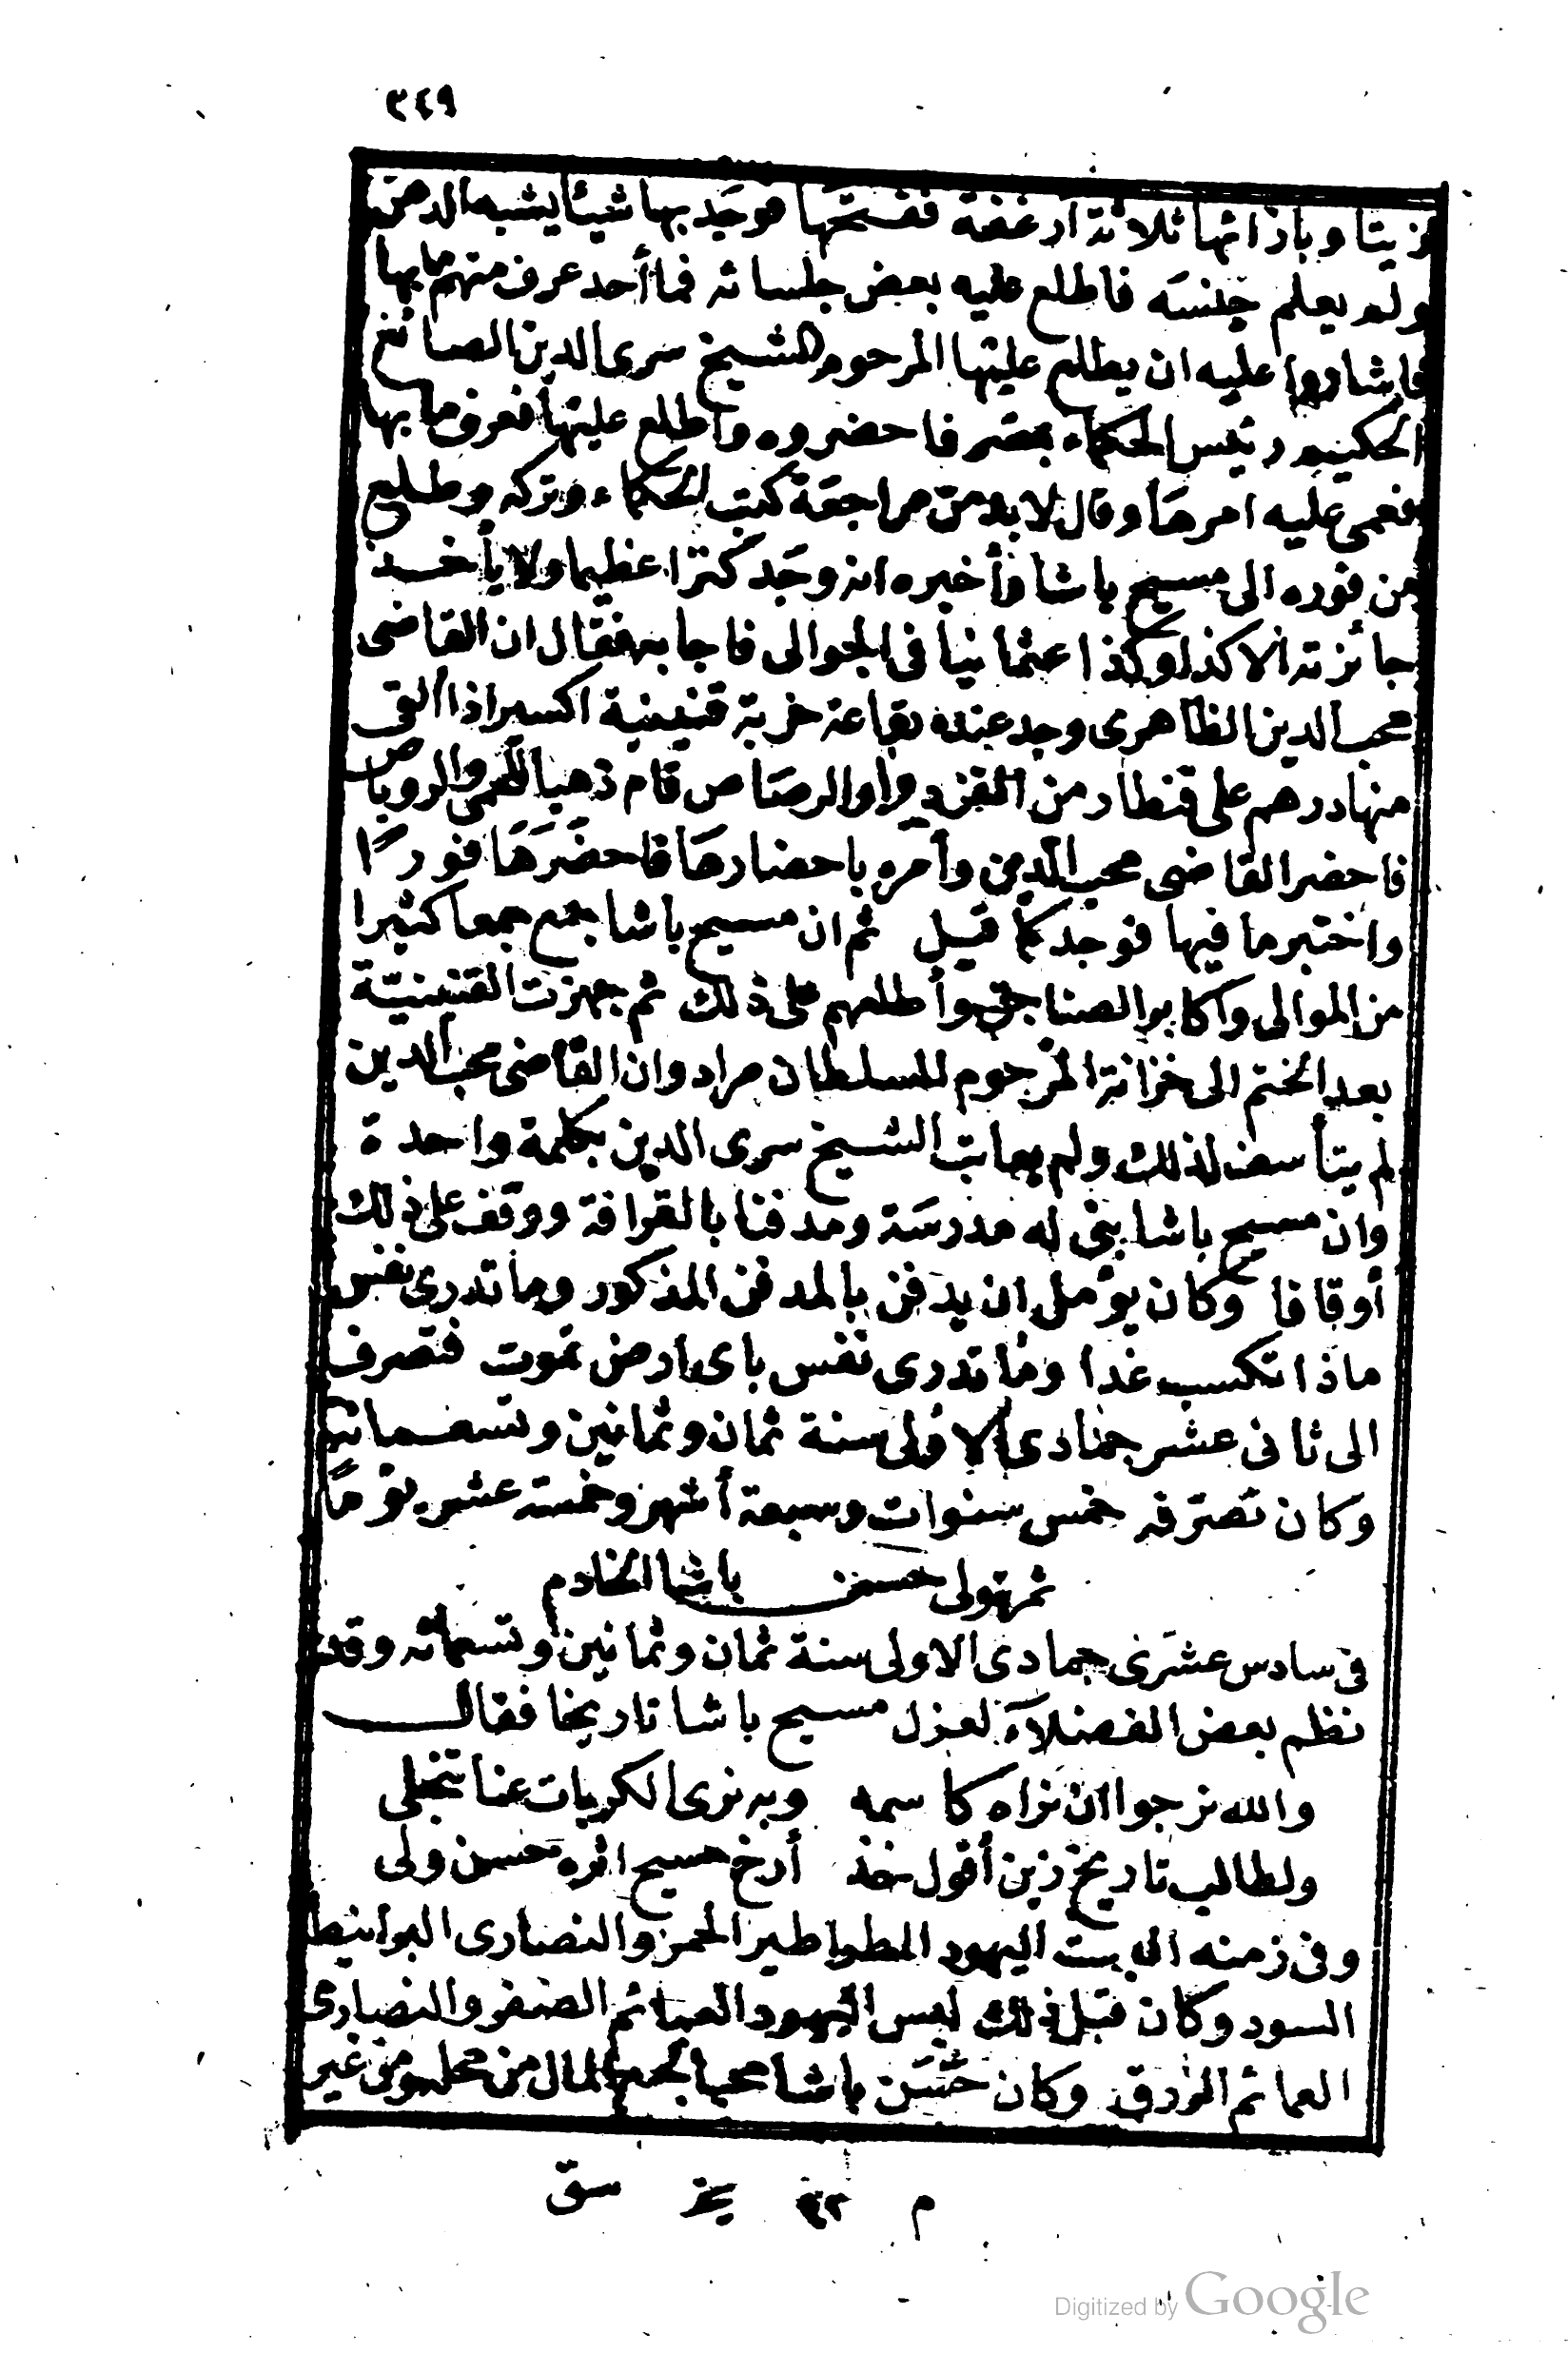 ٣٤٩
زيتا وباذائها ثلاثة ارغفة ففتحها فوجد بها شيئا يشبه الدهن
ولم يعلم جنسه فاطلع عليه بعض جلسائه فما أحد عرف منهم ما بها
فاشاروا عليه ان يطلع عليها المرحوم الشيخ سرى الدين الصائغ
الحكيم رئيس الحكماء بمصر فاحضروه واطلع عليها فعرف ما بها
فعمى عليه امرها وقال لا بد من مراجعة كتب الحكماء وتركه وطلع
من فوره الى مسيح باشا وأخبره انه وجد كنزا عظيما ولا يأخذ
جائزته الا كذا وكذا عثمانيا فى الجوالى فاجابه فقال ان القاضى
محب الدين الظاهرى وجد عنده بقاعة خربة قنينة اكسير اذا القى
منها درهم على قنطار من القزدير او الرصاص قام ذهبا للحمى والروباص
فاحضر القاضى محب الدين وأمره باحضارها فاحضرها فورًا
واختبر ما فيها فوجد كما قيل ثم ان مسيح باشا جمع جمعا كثيرا
من الموالى واكابر الصناجق وأطلعهم على ذلك ثم جهزت القنينة
بعد الختم الى خزانة المرحوم السلطان مراد وان القاضى محب الدين
لم يتأسف لذلك ولم يعاتب الشيخ سرى الدين بكلمة واحدة
وان مسيح باشا بنى له مدرسة ومدفنا بالقرافة ووقف على ذلك
أوقافا وكان يؤمل ان يدفن بالمدفن المذكور وما تدرى نفس
ماذا تكسب غدا وما تدرى نفس باى ارض تموت فتصرف
الى ثانى عشر جمادى الاولى سنة ثمان وثمانين وتسعمائة
وكان تصرفه خمس سنوات وسبعة أشهر وخمسة عشر يومًا
ثم تولى حسن باشا الخادم
فى سادس عشرى جمادى الاولى سنة ثمان وثمانين وتسعمائه وقد
نظم بعض الفضلاء لعزل مسيح باشا تاريخا فقال
والله نرجوا ان نراه كاسمه وبه نرى الكربات عنا تنجلى
ولطالب تاريخ زين أقول خذ أرخ مسيح اثره حسن ولى
وفى زمنه البست اليهود الطراطير الحمر والنصارى البرانيط
السود وكان قبل ذلك لبس اليهود العمائم الصفر والنصارى
العمائم الزرق وكان حسن باشا محبا لجمع المال من محله ومن غير
م ٣٢ يخ سق
Digitized by Google